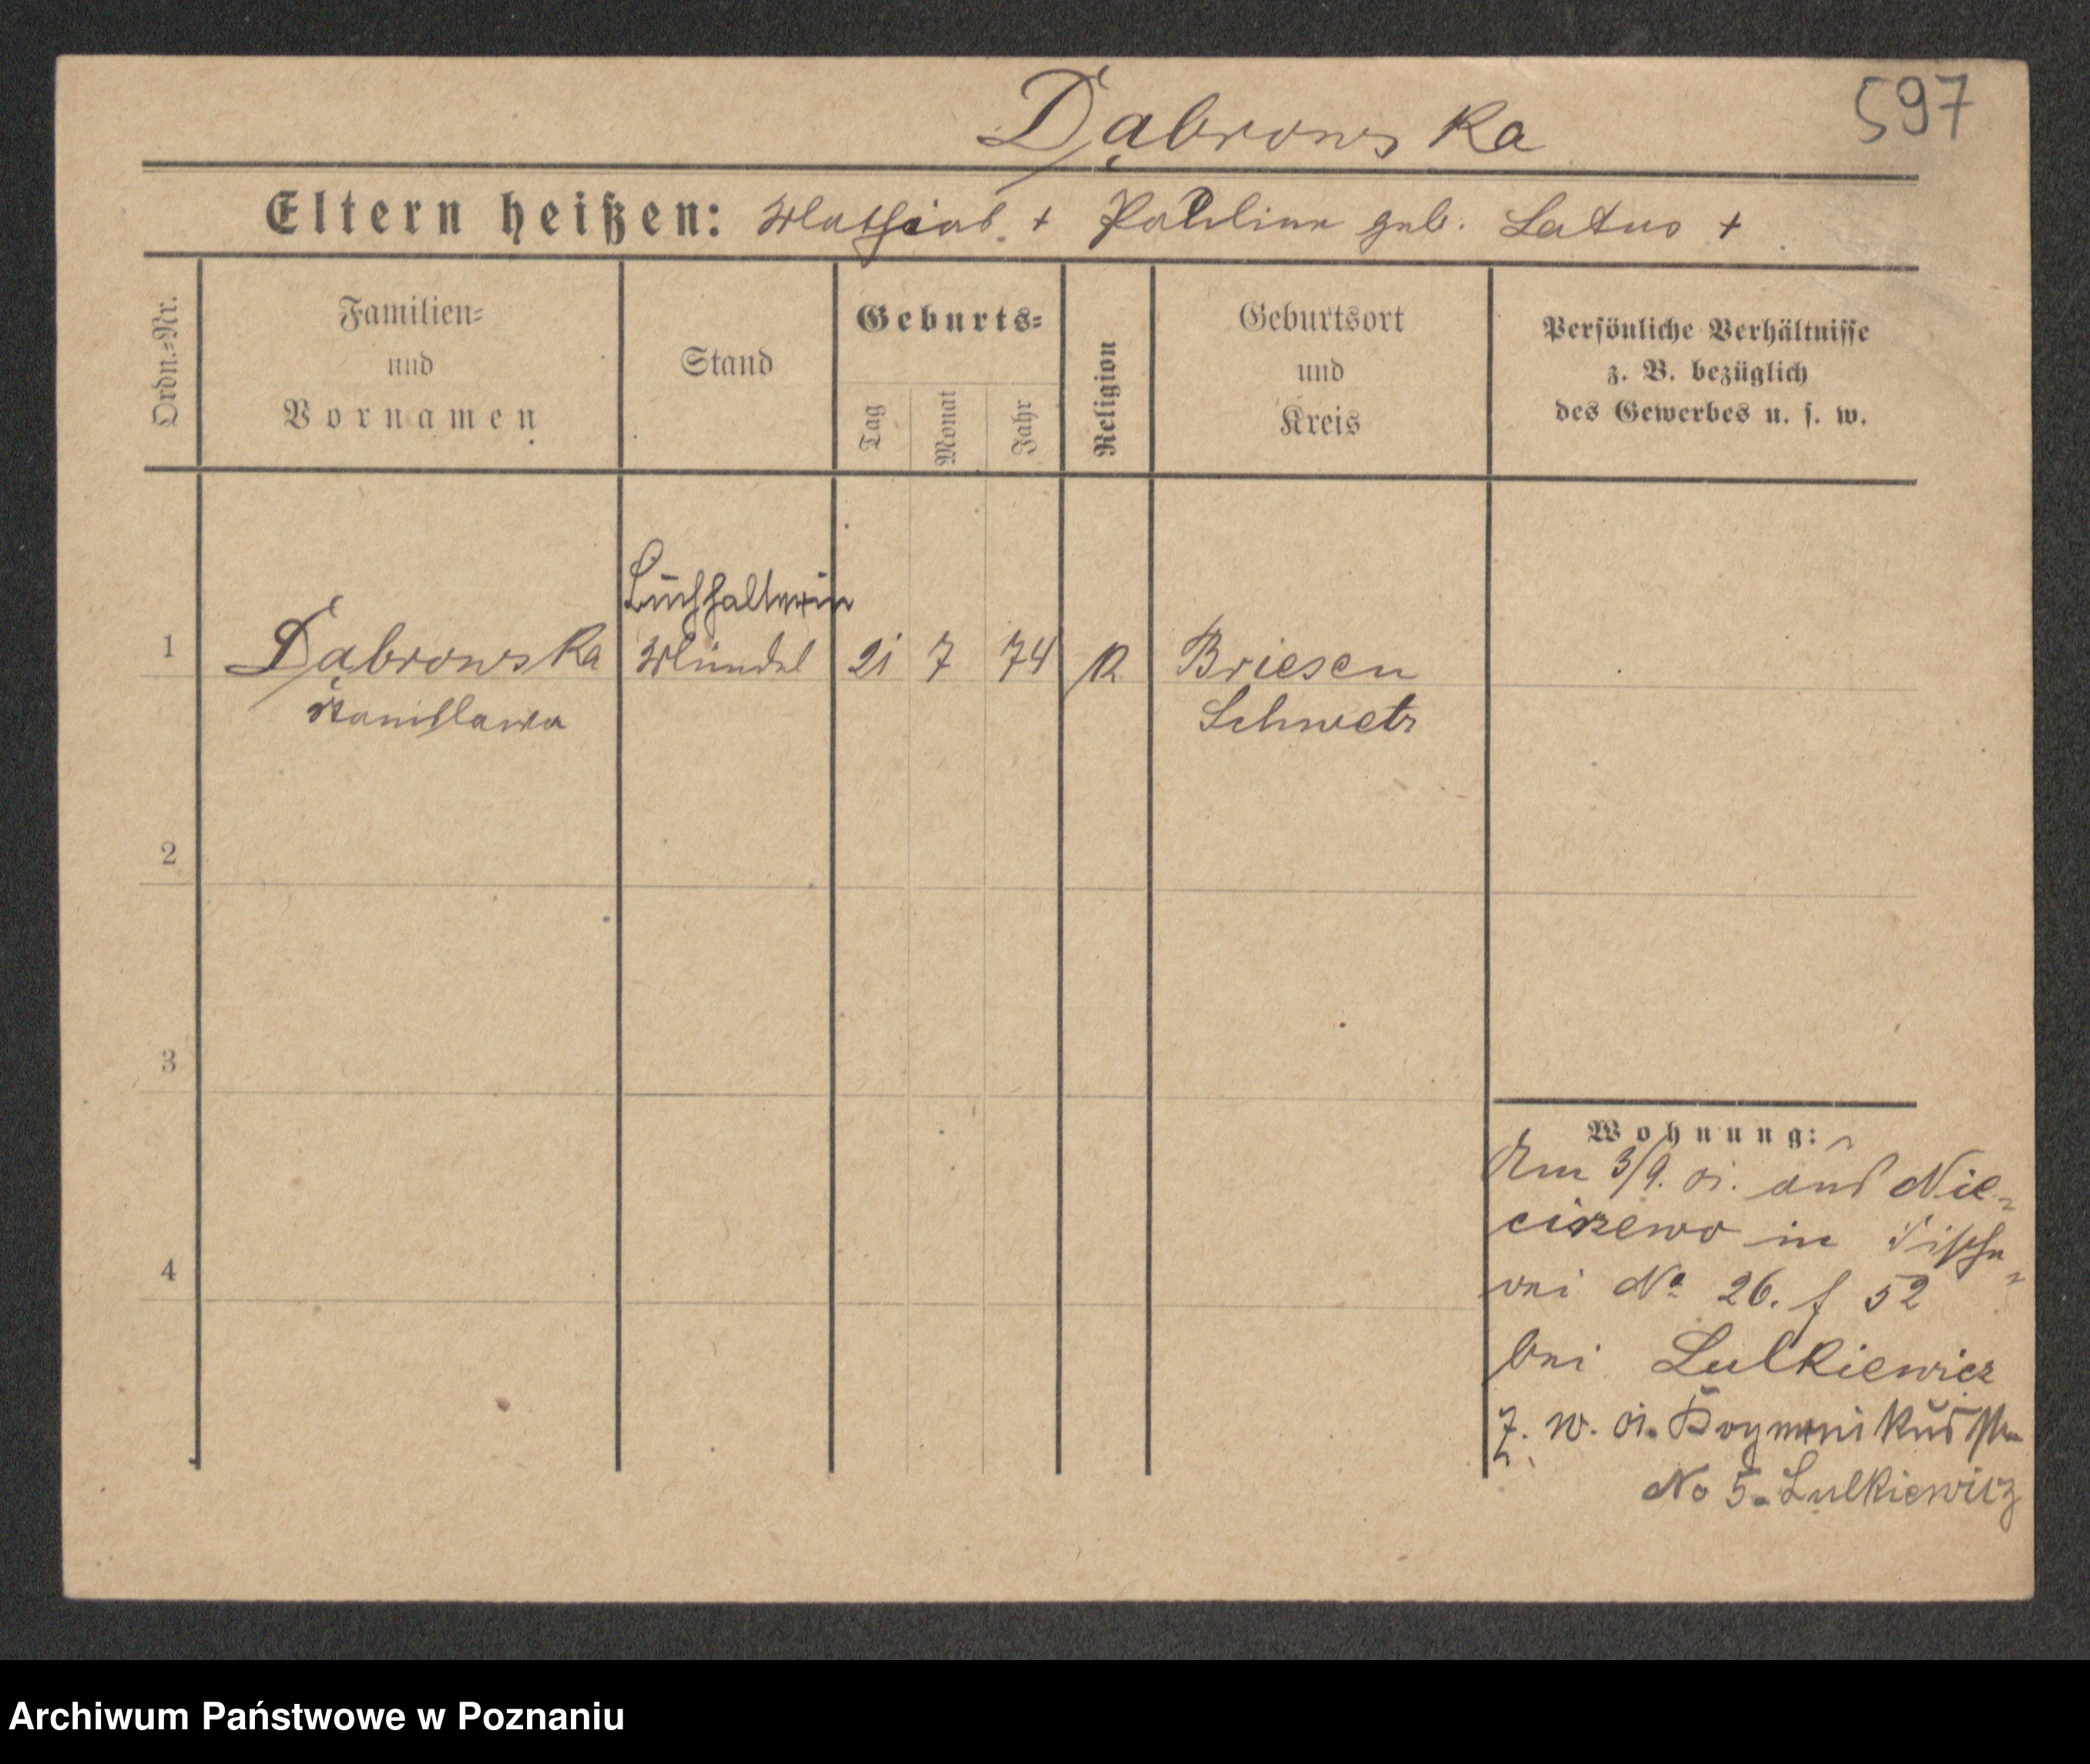 Dąbrowska
597
Eltern heißen: Mathias + Pauline geb. Latus +
Ordn.=Nr.
Familien=
und
Vornamen
Stand
Geburts=
Tag
Monat
Jahr
Religion
Geburtsort
und
Kreis
Persönliche Verhältnisse
z. B. bezüglich
des Gewerbes u. s. w.
Buchhalterin
1 Dąbrowska Mündel 21 7 74 R. Briesen
Stanislawa Schwetz
2
3
4
Wohnung:
Am 3/9. 91. aus Nie-
ciszewo in Fische-
rei No 26. f 52
bei Lulkiewicz
7. 10. 91.
No 5. Lulkiewicz
Archiwum Państwowe w Poznaniu